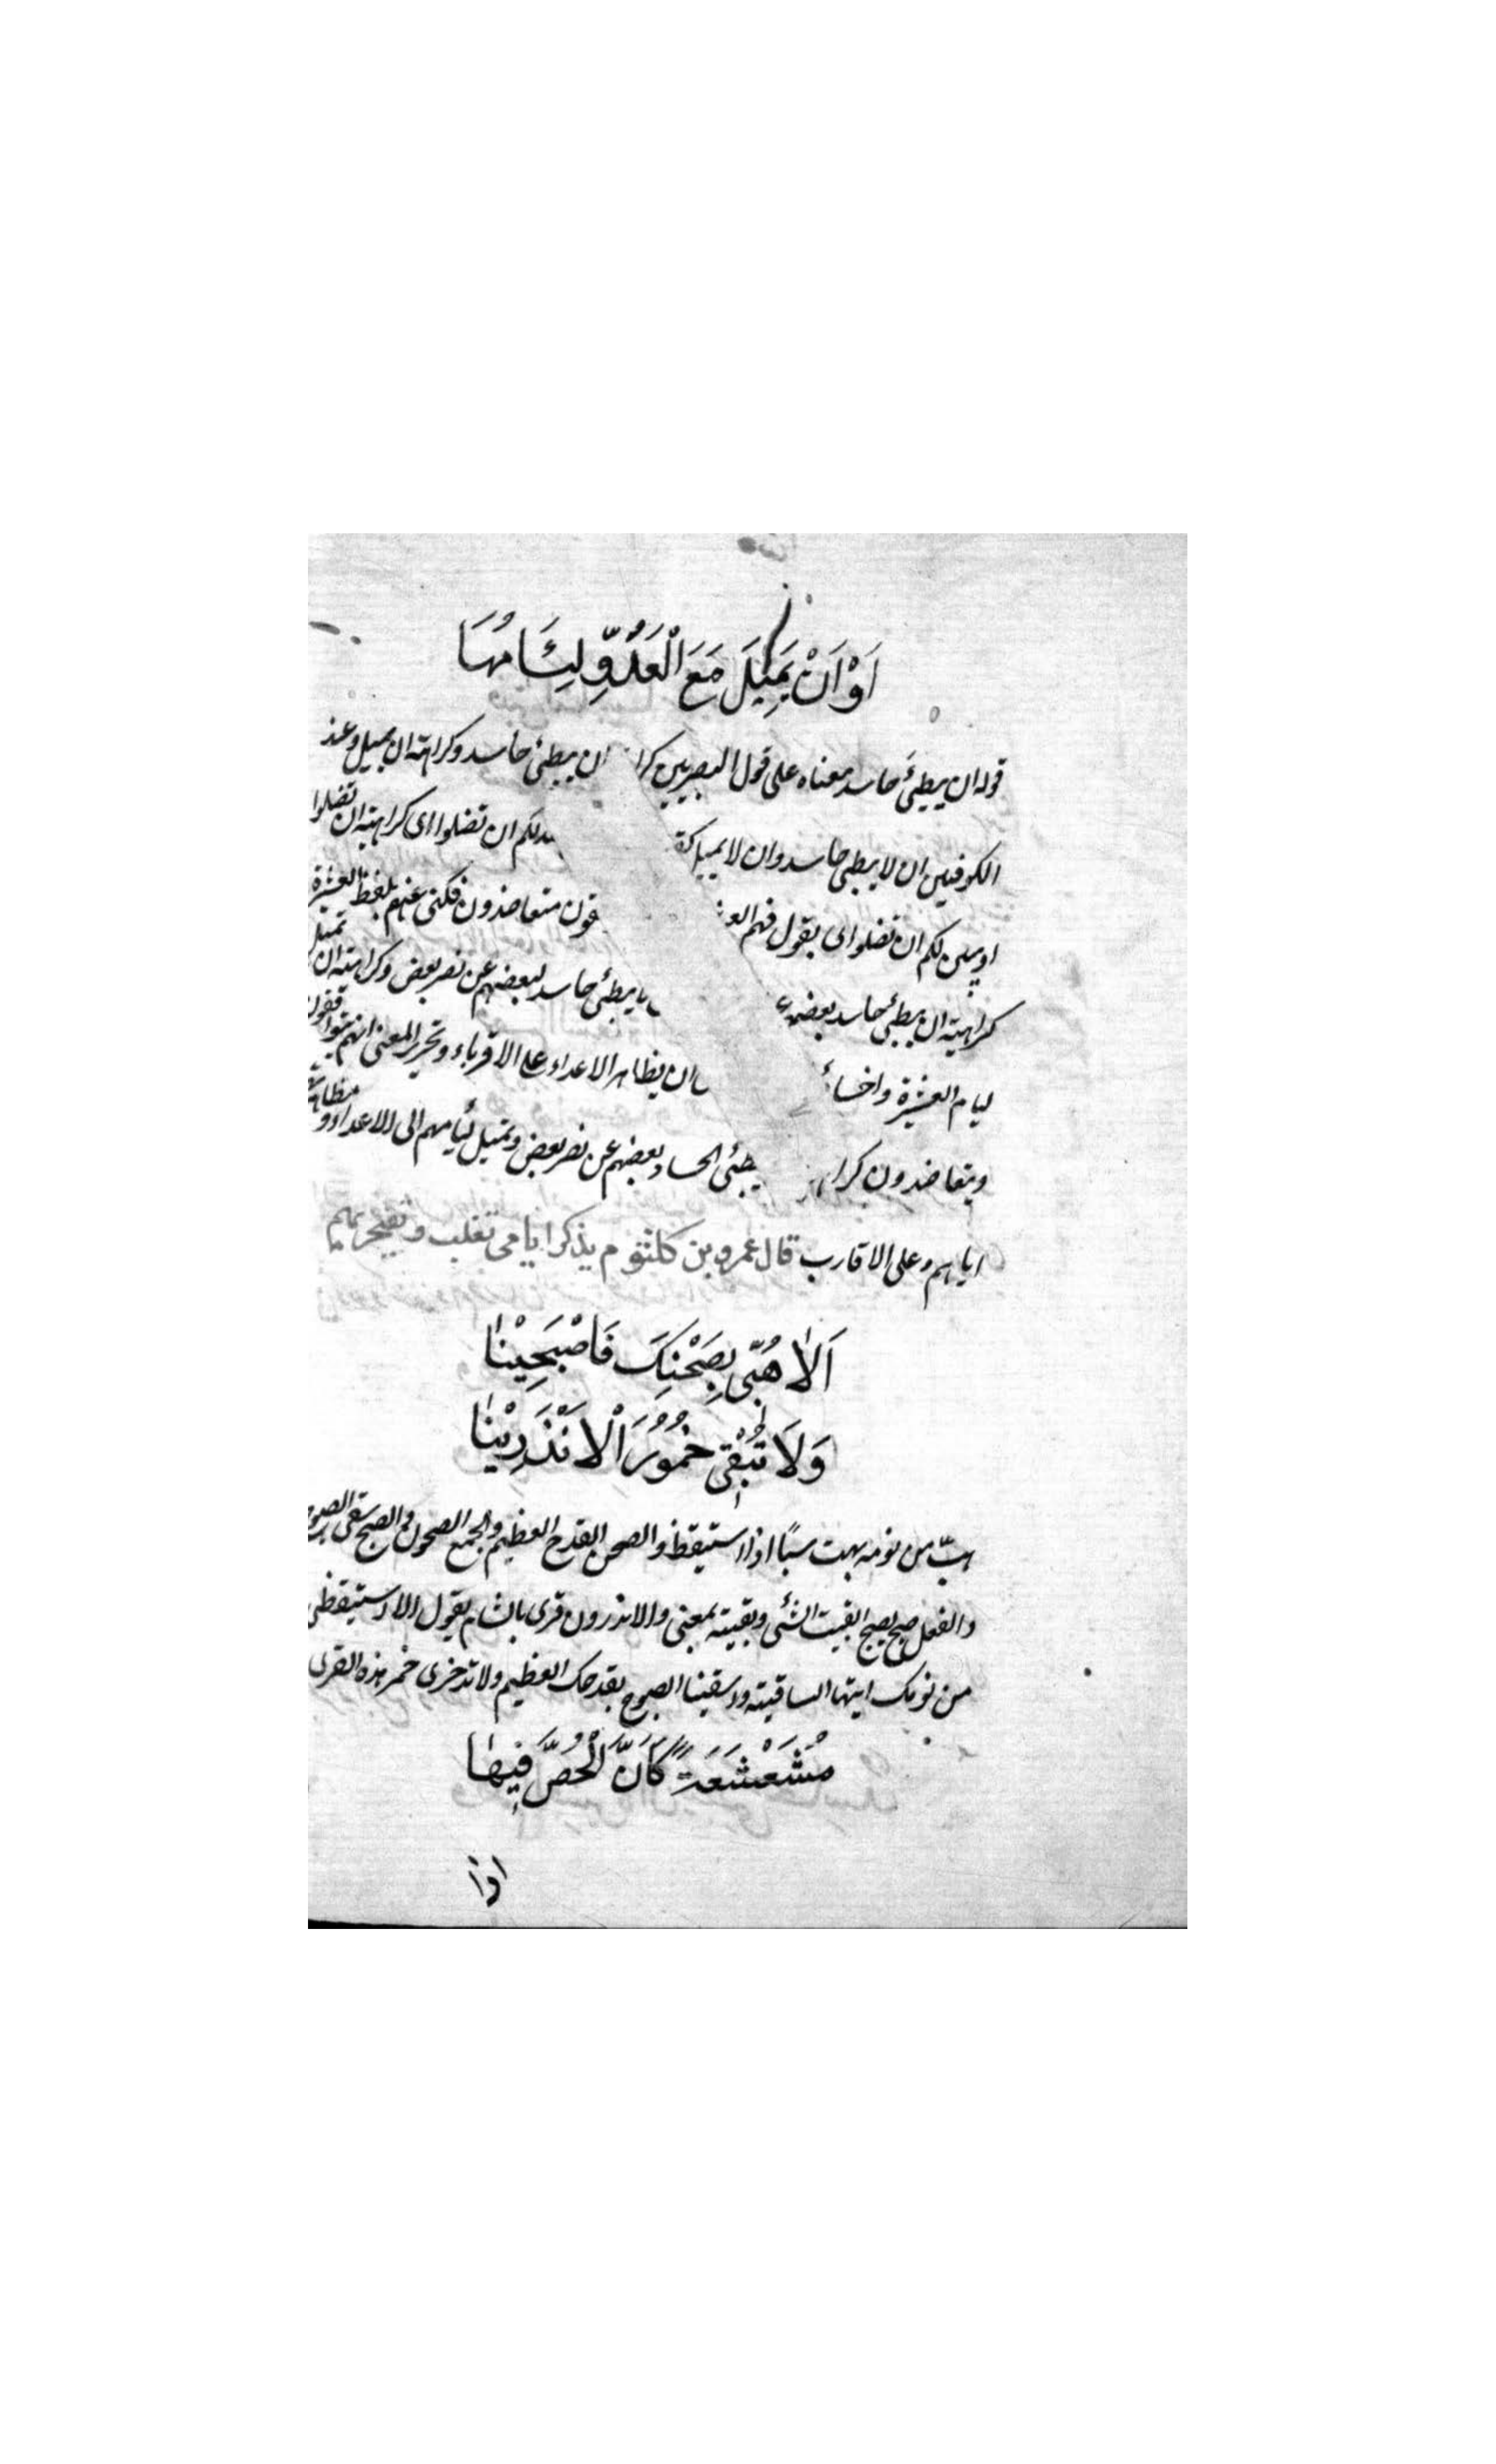 اَوْ اَنْ يَمِيْلَ مَعَ الْعَدُوِّ لِئَامُهَا
قوله ان يبطئ حاسد معناه على قول البصريين كرا ان يبطئ حاسد وكراهته ان يميل وعند
الكوفيين ان لا يبطئ حاسد وان لا يميل كقو لكم ان تضلوا اى كراهته ان تضلوا
او يبين لكم ان تضلوا اى يقول فهم العـ قون متعاضدون فكنى عنهم بلفظ العشيرة
كراهية ان يبطئ حاسد بعضهم يبطئ حاسد لبعضهم عن نصر بعض وكراهته ان تميل
ليام العشيرة واخسا ان يظاهر الاعداء على الاقرباء وتحرير المعنى انهم يتوافقون
ويتعاضدون كرا يبطئ الحساد بعضهم عن نصر بعض وتميل ليامهم الى الاعداء و
اياهم وعلى الاقارب قال عمرو بن كلثوم يذكر ايامى تغلب وتفخر بهم
اَلاٰ هُبِّىْ بِصَحْنِكَ فَاصْبَحِيْنٰا
وَلَا تُبْقِىْ خُمُوْرَ الْاَنْذَرِيْنٰا
هبّ من نومه يهب هبًا اذا استيقظ والصحن القدح العظيم والجمع الصحون والصبح سقى الصبوح
والفعل صبح يصبح ابقيت الشئ وبقيته بمعنى والاندرون قرى بالشام يقول الا استيقظى
من نومك ايتها الساقيته واسقينا الصبوح بقدحك العظيم ولا تدخرى خمر هذه القرى
مُشَعْشَعَةً كَاَنَّ الْحُصَّ فِيْهٰا
اذا